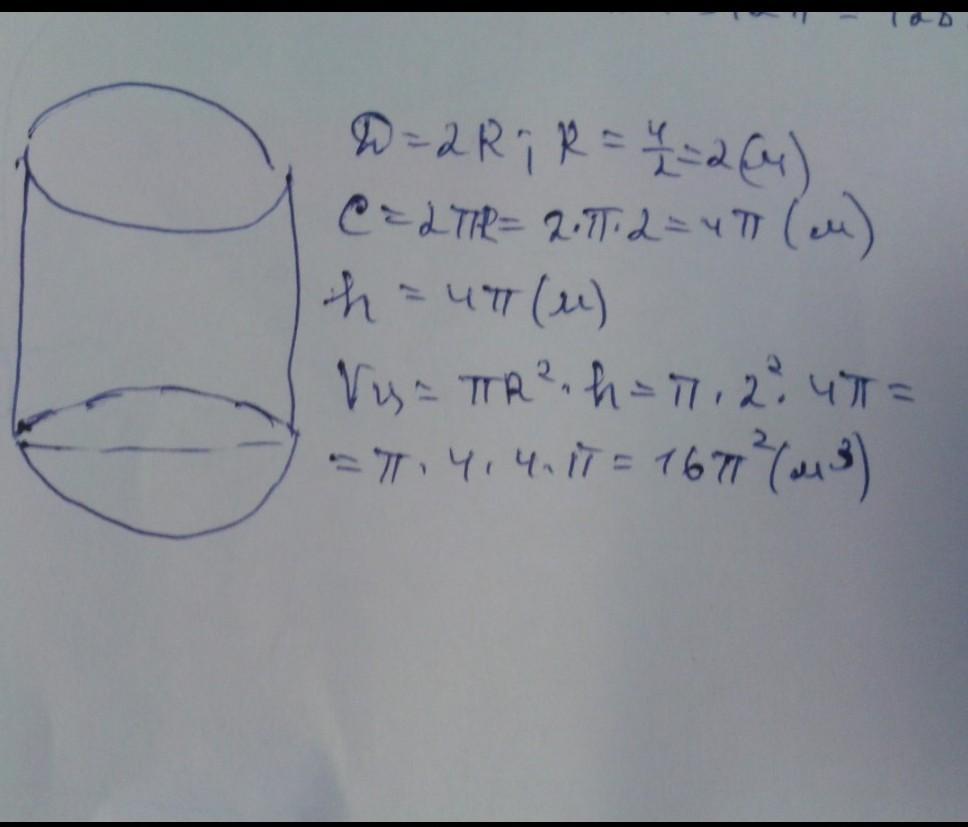 D = 2R; R = 4/2 = 2 (м)
C = 2πR = 2·π·2 = 4π (м)
h = 4π (м)
Vц = πR²·h = π·2²·4π =
= π·4·4·π = 16π² (м³)